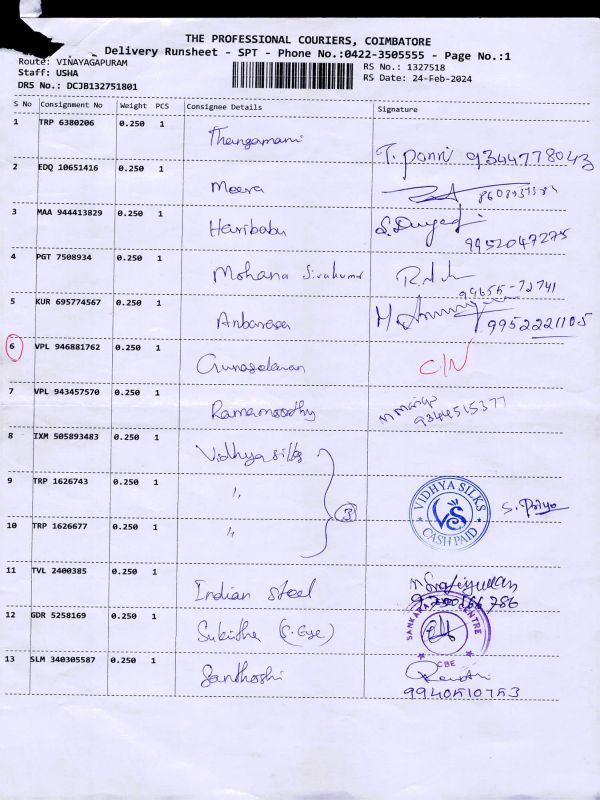 THE PROFESSIONAL COURIERS, COIMBATORE
Delivery Runsheet - SPT - Phone No.:0422-3505555 - Page No.:1
Route: VINAYAGAPURAM
RS No.: 1327518
Staff: USHA
RS Date: 24-Feb-2024
DRS No.: DCJB132751801
S No Consignment No Weight PCS Consignee Details Signature
1 TRP 6380206 0.250 1 Thangamani T. Ponni 9344778043
2 EDQ 10651416 0.250 1 Meera
3 MAA 944413829 0.250 1 Haribabu 9952047275
4 PGT 7508934 0.250 1 Mohana Sivakumar 99655-72741
5 KUR 695774567 0.250 1 Anbarasa 9952221105
6 VPL 946881762 0.250 1 Gunasekaran C/N
7 VPL 943457570 0.250 1 Ramamoorthy 9344515377
8 IXM 505893483 0.250 1 Vidhya silks
9 TRP 1626743 0.250 1 〃 3 VIDHYA SILKS VS CASH PAID S. Priya
10 TRP 1626677 0.250 1 〃
11 TVL 2400385 0.250 1 Indian steel
12 GDR 5258169 0.250 1 Sukitha (S. Eye) SANKARA CENTRE CBE
13 SLM 340305587 0.250 1 Santhoshi Revathi
9940510753